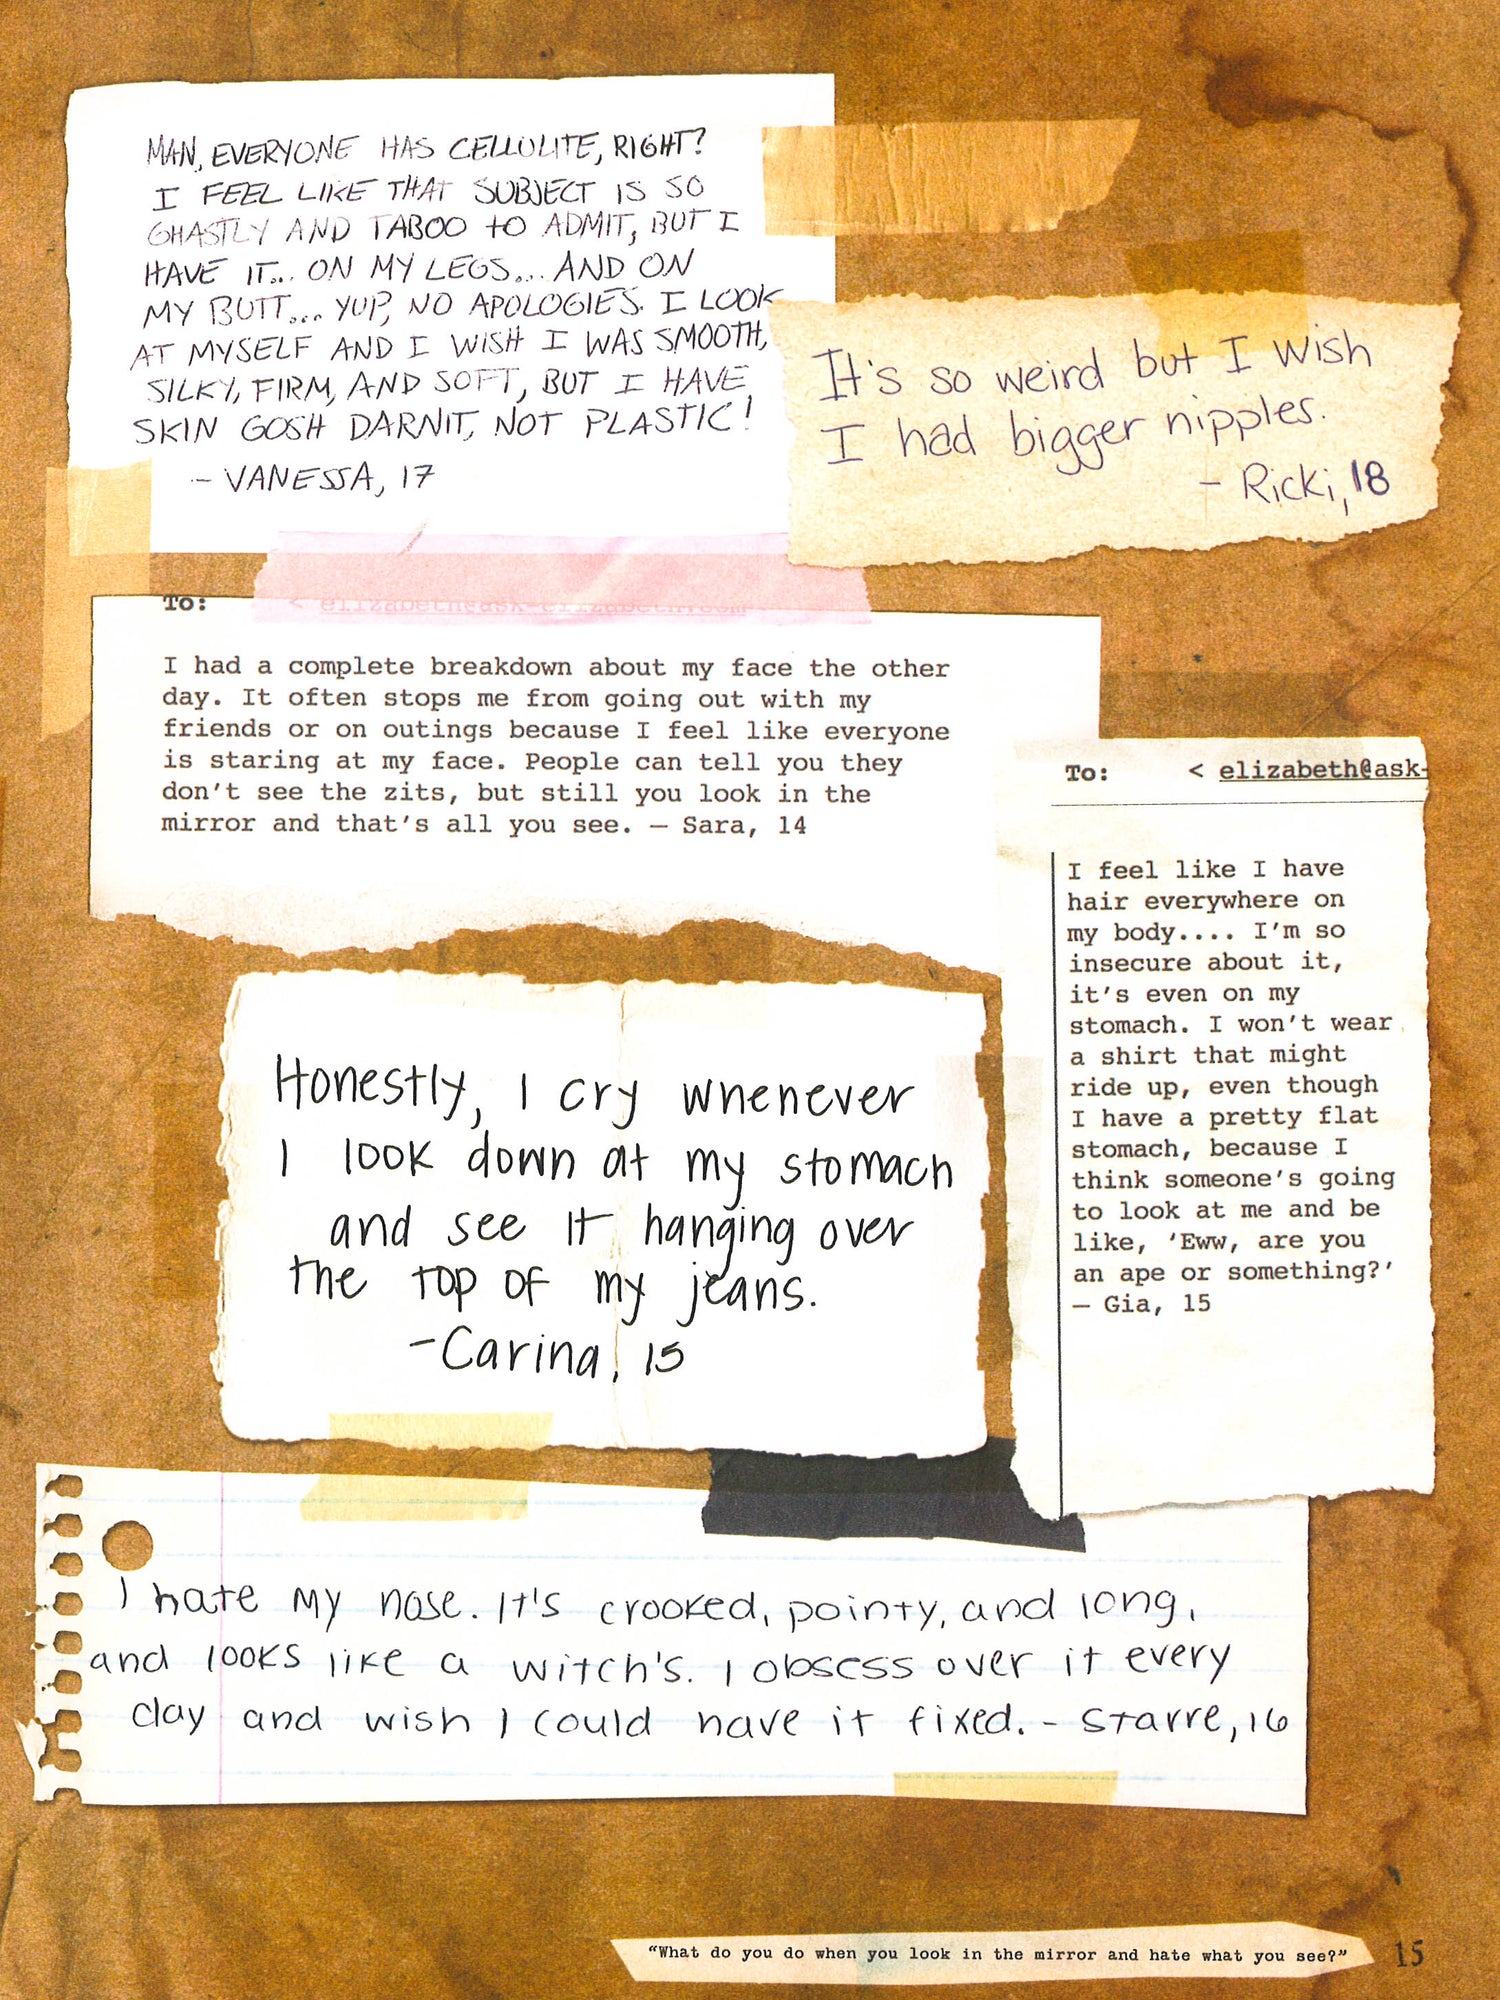 MAN, EVERYONE HAS CELLULITE, RIGHT?
I FEEL LIKE THAT SUBJECT IS SO
GHASTLY AND TABOO TO ADMIT, BUT I
HAVE IT... ON MY LEGS... AND ON
MY BUTT... YUP, NO APOLOGIES. I LOOK
AT MYSELF AND I WISH I WAS SMOOTH,
SILKY, FIRM, AND SOFT, BUT I HAVE
SKIN GOSH DARNIT, NOT PLASTIC!
- VANESSA, 17
It's so weird but I wish
I had bigger nipples.
- Ricki, 18
To: < elizabeth@ask-elizabeth.com
I had a complete breakdown about my face the other
day. It often stops me from going out with my
friends or on outings because I feel like everyone
is staring at my face. People can tell you they
don't see the zits, but still you look in the
mirror and that's all you see. — Sara, 14
To: < elizabeth@ask-
I feel like I have
hair everywhere on
my body.... I'm so
insecure about it,
it's even on my
stomach. I won't wear
a shirt that might
ride up, even though
I have a pretty flat
stomach, because I
think someone's going
to look at me and be
like, 'Eww, are you
an ape or something?'
— Gia, 15
Honestly, I cry whenever
I look down at my stomach
and see it hanging over
the top of my jeans.
-Carina, 15
I hate my nose. It's crooked, pointy, and long,
and looks like a witch's. I obsess over it every
day and wish I could have it fixed. - Starre, 16
"What do you do when you look in the mirror and hate what you see?" 15